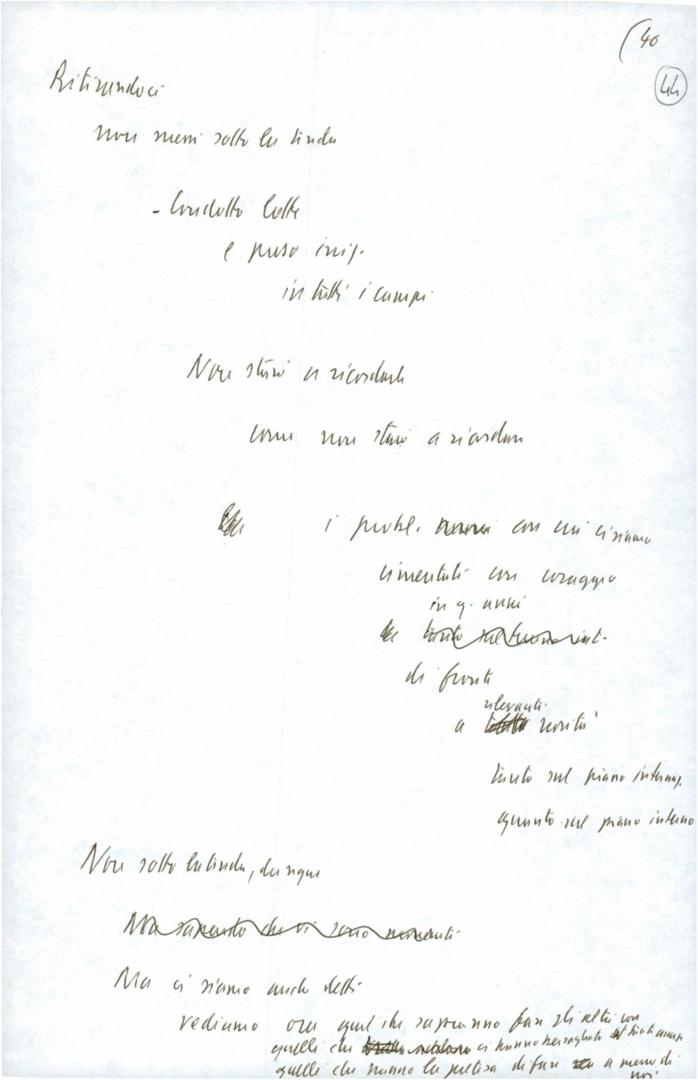 (40
44
Ritirandoci
non messi sotto la tenda
- Condotto lotte
e preso iniz.
in tutti i campi
Non starò a ricordarle
come non starò a ricordare
i probl. con cui ci siamo
cimentati con coraggio
in q. anni
di fronte
rilevanti
a novità
tanto sul piano internaz.
quanto sul piano interno
Non sotto la tenda, dunque
Ma ci siamo anche detti
vediamo ora quel che sapranno fare gli altri con
quelli che ci hanno bersagliato
quelli che hanno la pretesa di fare a meno di
noi